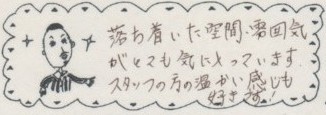 落ち着いた空間・雰囲気
がとても気に入っています。
スタッフの方の温かい感じも
好きです!